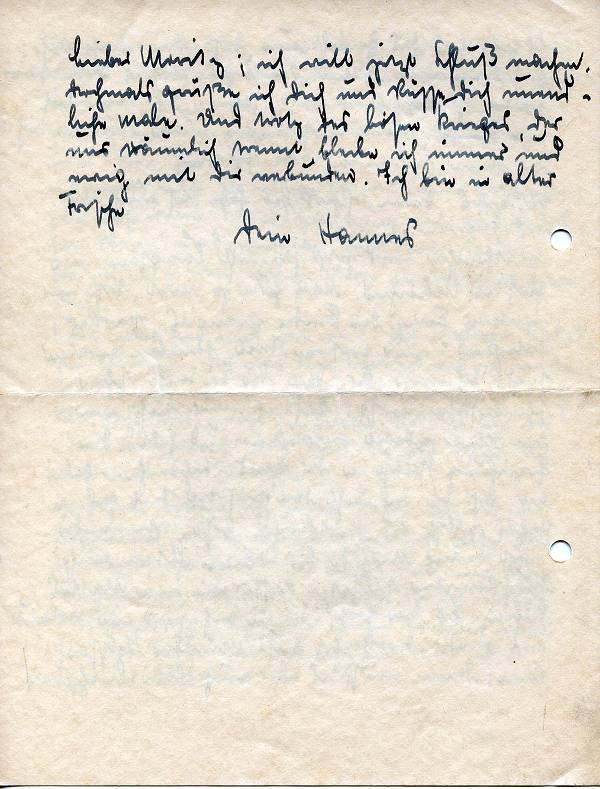 Lieber Moritz; ich will jetzt Schluß machen.
Nochmals grüße ich Dich und küsse Dich unend-
liche Male. Und trotz des bösen Krieges, der
uns räumlich trennt bleibe ich immer und
ewig mit Dir verbunden. Ich bin in alter
Frische
Dein Hannes